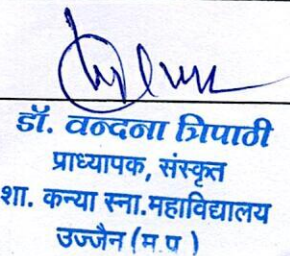 डॉ. वन्दना त्रिपाठी
प्राध्यापक, संस्कृत
शा. कन्या स्ना.महाविद्यालय
उज्जैन (म.प )